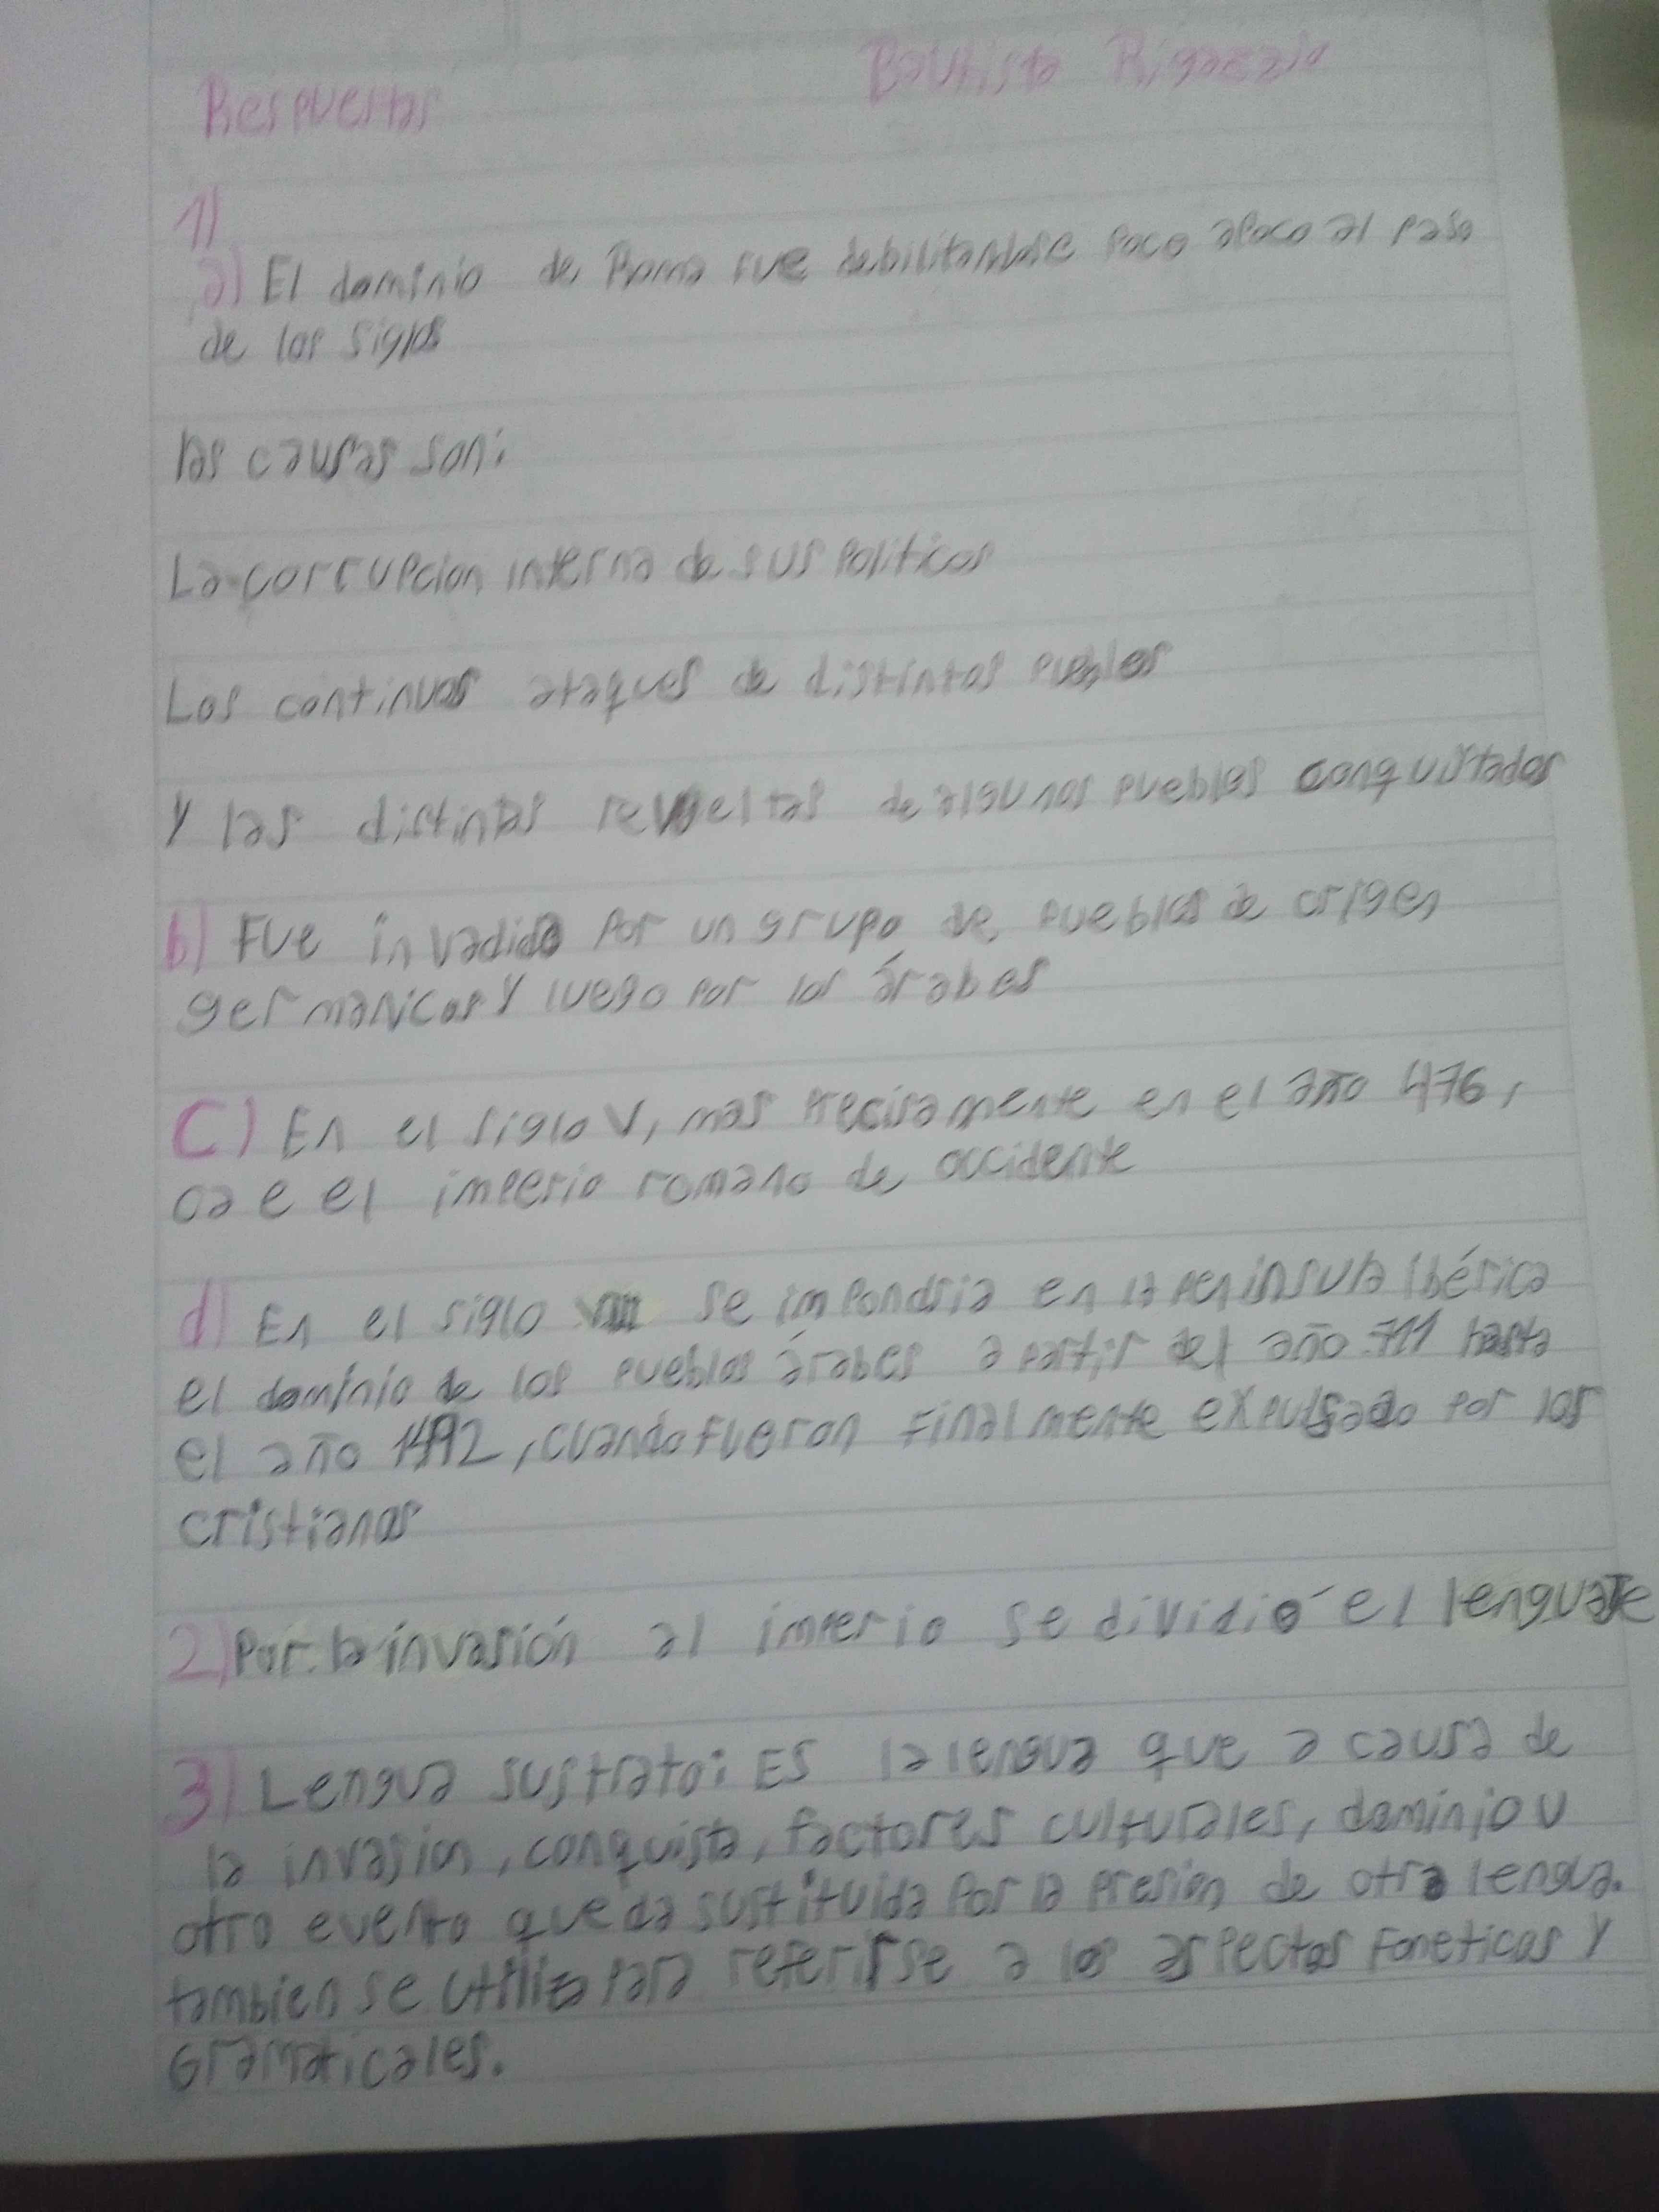 Respuestas Bautista Rigazzio
1)
a) El dominio de Roma fue debilitandose poco apoco al paso
de los siglos
las causas son:
La corrupcion interna de sus politicos
Los continuos ataques de distintos pueblos
Y las distintas revueltas de algunos pueblos conquistados
b) Fue invadido por un grupo de pueblos de origen
germanicos y luego por los árabes
C) En el siglo V, mas precisamente en el año 476,
cae el imperio romano de occidente
d) En el siglo VIII se impondria en la peninsula ibérica
el dominio de los pueblos árabes a partir del año 711 hasta
el año 1492, cuando fueron finalmente expulsado por los
cristianos
2) Por la invasión al imperio se dividió el lenguaje
3) Lengua sustrato: Es la lengua que a causa de
la invasion, conquista, factores culturales, dominio u
otro evento queda sustituida por la presión de otra lengua.
tambien se utiliza para referirse a los aspectos foneticos y
Gramaticales.